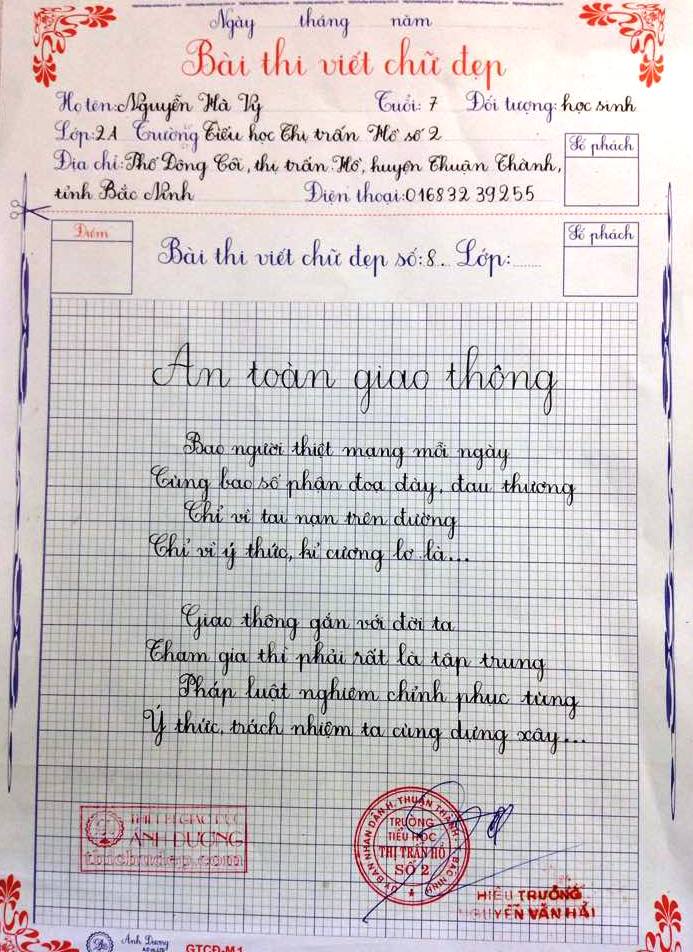 Ngày tháng năm
Bài thi viết chữ đẹp
Họ tên: Nguyễn Hà Vy Tuổi: 7 Đối tượng: học sinh
Lớp: 2A Trường Tiểu học Thị trấn Hồ số 2
Số phách
Địa chỉ: Phố Đông Côi, thị trấn Hồ, huyện Thuận Thành,
tỉnh Bắc Ninh Điện thoại: 016832 39255
Điểm
Bài thi viết chữ đẹp số: 8.. Lớp:......
Số phách
An toàn giao thông
Bao người thiệt mạng mỗi ngày
Cùng bao số phận đoạ đày, đau thương
Chỉ vì tai nạn trên đường
Chỉ vì ý thức, kỉ cương lơ là...
Giao thông gắn với đời ta
Tham gia thì phải rất là tập trung
Pháp luật nghiêm chỉnh phục tùng
Ý thức, trách nhiệm ta cùng dựng xây...
THIẾT BỊ GIÁO DỤC
ÁNH DƯƠNG
ỦY BAN NHÂN DÂN H. THUẬN THÀNH T. BẮC NINH
TRƯỜNG
TIỂU HỌC
THỊ TRẤN HỒ
SỐ 2
HIỆU TRƯỞNG
NGUYỄN VĂN HẢI
Ánh Dương
GTCĐ-M1